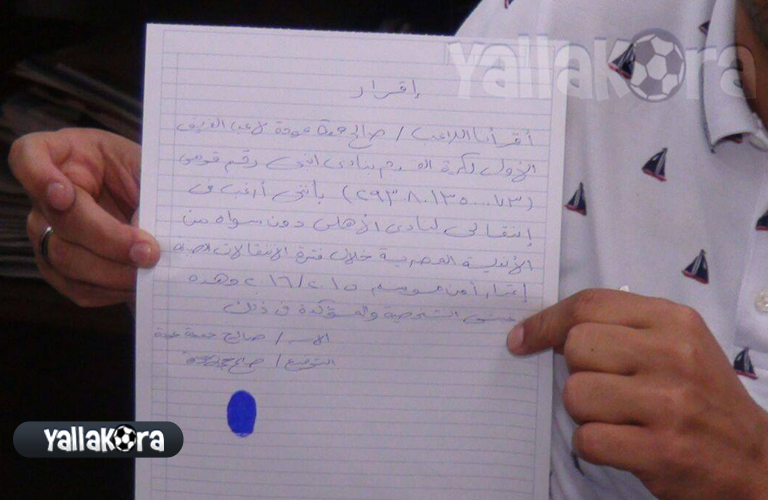 YallaKora
إقرار
أقر أنا اللاعب / صالح جمعة عودة لاعب الفريق
الأول لكرة القدم بنادى إنبى رقم قومى
بأننى أرغب فى
إنتقالى لنادى الأهلى دون سواه من
الأندية المصرية خلال فترة الانتقالات
إعتباراً من موسم ٢٠١٥/٢٠١٦ وهذه
الشخصية والمؤكدة فى ذلك
الاسم / صالح جمعة عودة
التوقيع / صالح
YallaKora